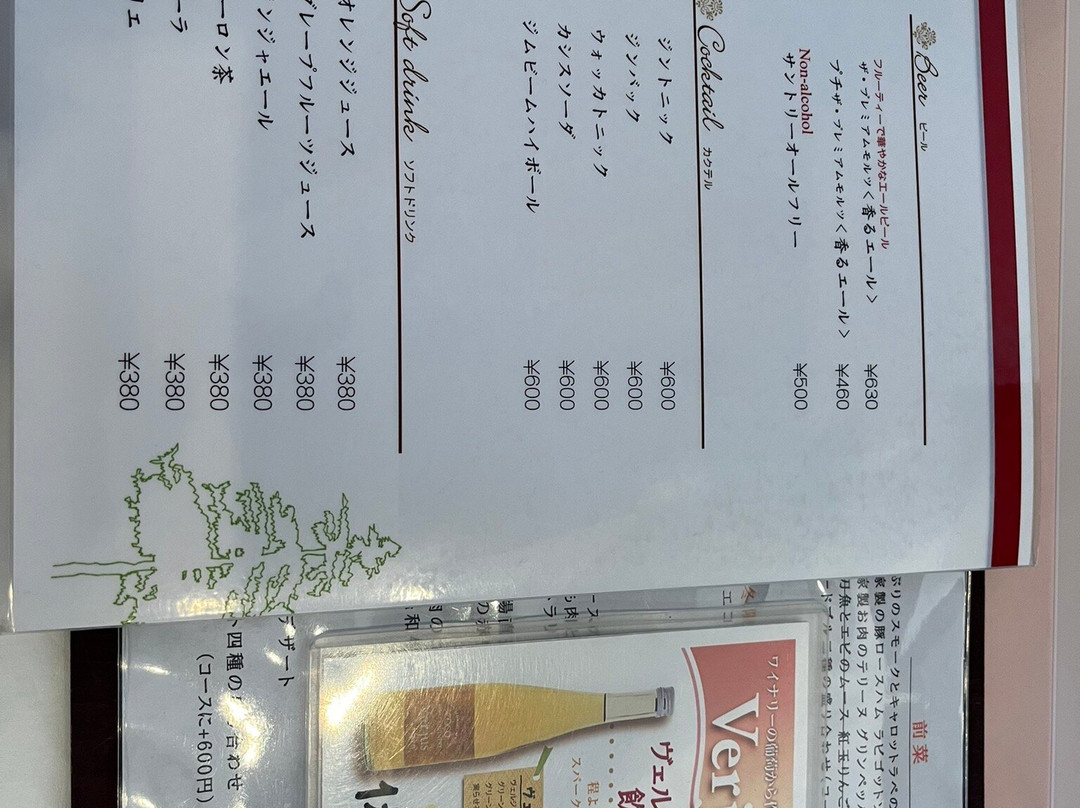 Beer ビール
フルーティーで華やかなエールビール
ザ・プレミアムモルツ＜香るエール＞ ¥630
プチザ・プレミアムモルツ＜香るエール＞ ¥460
Non-alcohol
サントリーオールフリー ¥500
Cocktail カクテル
ジントニック ¥600
ジンバック ¥600
ウォッカトニック ¥600
カシスソーダ ¥600
ジムビームハイボール ¥600
Soft drink ソフトドリンク
オレンジジュース ¥380
グレープフルーツジュース ¥380
ンジャエール ¥380
ーロン茶 ¥380
ーラ ¥380
ェ ¥380
前菜
ぶりのスモークとキャロットラペの
家製の豚ロースハム ラビゴット
家製お肉のテリーヌ グリンペッ
魚とエビのムース 紅玉りんご
冬
デザート
四種の 合わせ
(コースに+600円)
ワイナリーの葡萄から
Ver
ヴェル
飲
程よ
スパーク